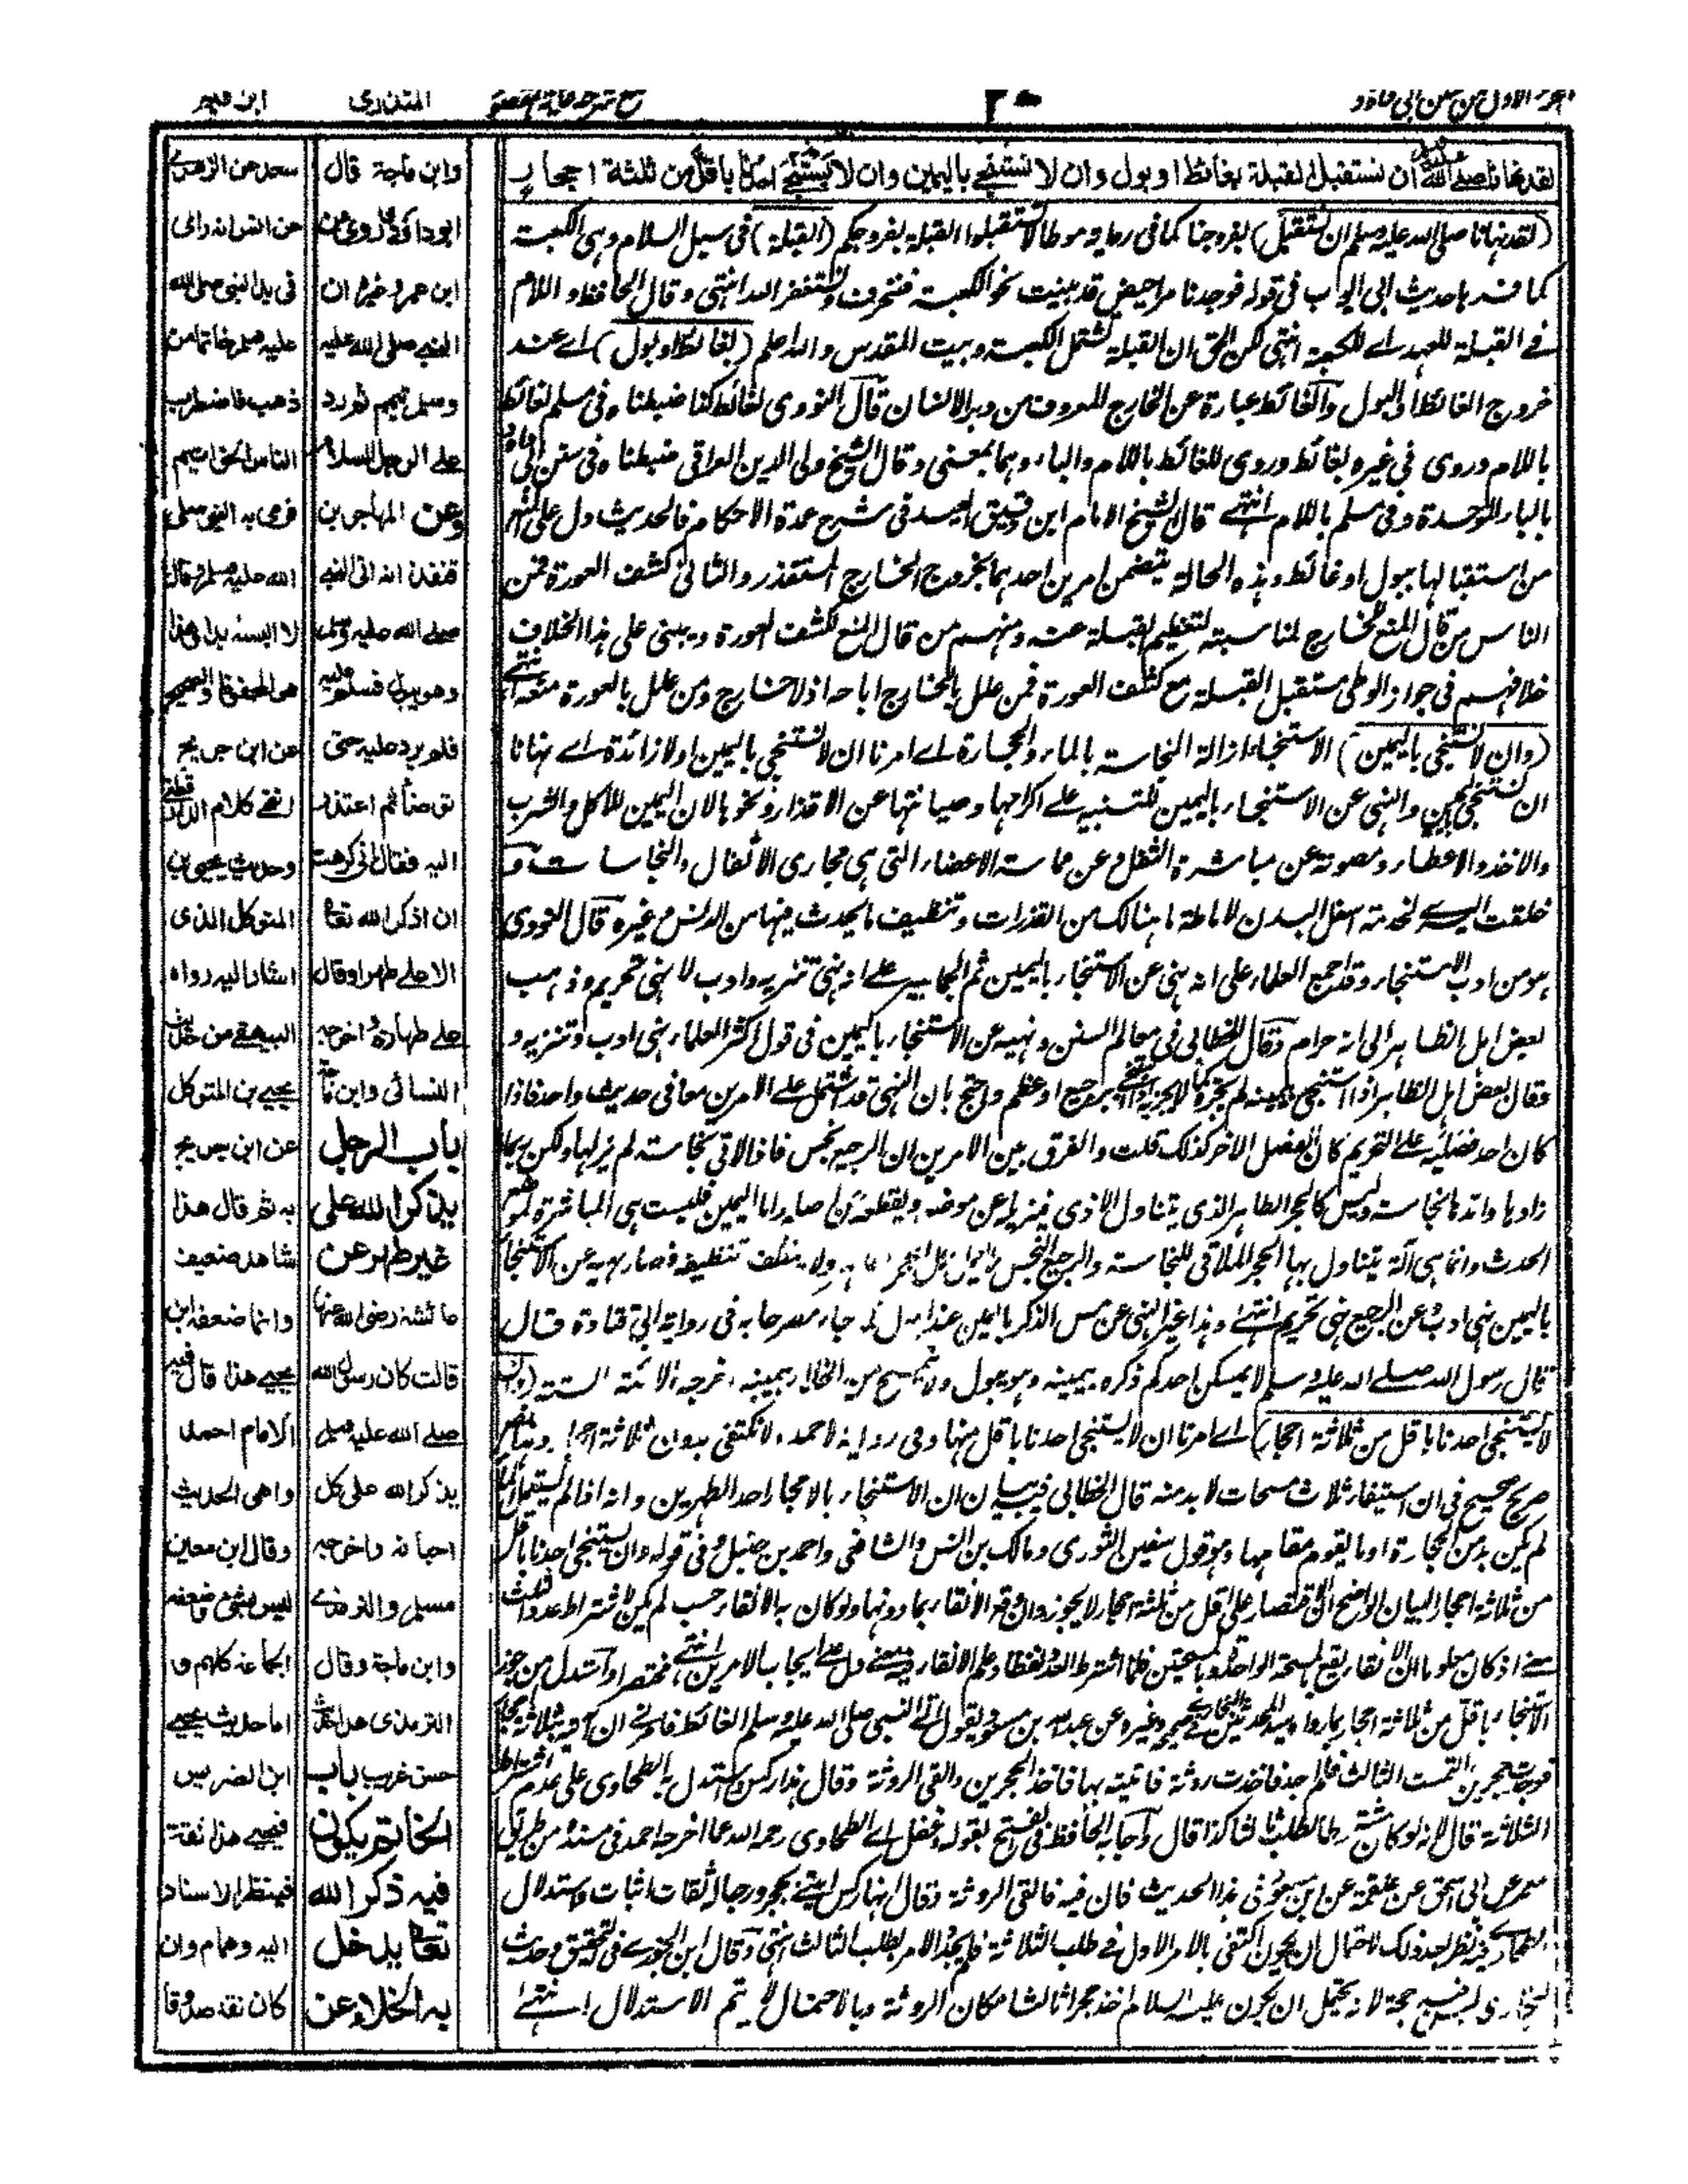 الجزء الاول من سنن ابي داود
مع شرحه غاية المقصود
المنذرى
ابن قيم
لقد نهانا صلى الله عليه وسلم ان نستقبل القبلة بغائط او بول وان لا نستنجي باليمين وان لا يستنجي احدنا باقل من ثلثة احجار
(لقد نهانا صلى الله عليه وسلم ان نستقبل) بفروجنا كما فى رواية موطا لا تستقبلوا القبلة بفروجكم (القبلة) فى سبل السلام وهى الكعبة
كما فسرها حديث ابى ايوب فى قوله فوجدنا مراحيض قد بنيت نحو الكعبة فننحرف ونستغفر الله انتهى وقال الحافظ واللام
فى القبلة للعهد اے للكعبة انتهى لكن الحق ان القبلة تشتمل الكعبة وبيت المقدس والله اعلم (بغائط او بول) اے عند
خروج الغائط او البول والغائط عبارة عن الخارج المعروف من دبر الانسان قال النووى لغائط كذا ضبطناه فى مسلم لغائط
باللام وروى فى غيره بغائط وروى للغائط باللام والباء وهما بمعنى وقال الشيخ ولى الدين العراقى ضبطناه فى سنن ابى داود
بالباء الموحدة وفى مسلم باللام انتهى قال الشيخ الامام ابن دقيق العيد فى شرح عمدة الاحكام والحديث دل على المنع
من استقبالها ببول او غائط وهذه الحالة يتضمن امرين احدهما بخروج الخارج المستقذر والثانى كشف العورة فمن
الناس من قال المنع للخارج لمناسبته لتعظيم القبلة عنه ومنهم من قال المنع لكشف العورة ويبنى على هذا الخلاف
خلافهم فى جواز الوطى مستقبل القبلة مع كشف العورة فمن علل بالخارج اباحه اذ لا خارج ومن علل بالعورة منعه انتهى
(وان لا نستنجى باليمين) الاستنجاء ازالة النجاسة بالماء والحجارة اے امرنا ان لا نستنجى باليمين او لا زائدة اے نهانا
ان نستنجى باليمين والنهى عن الاستنجاء باليمين للتنبيه على اكرامها وصيانتها عن الاقذار ونحوها لان اليمين للاكل والشرب
والاخذ والاعطاء ومصونة عن مباشرة الثفل وعن مماسة الاعضاء التى هى مجارى الاثفال والنجاسات و
خلقت اليسرى لخدمة اسفل البدن لاماطة ما هنالك من القذرات وتنظيف ما يحدث فيها من الدنس وغيره قال النووى
هو من ادب الاستنجاء وقد اجمع العلماء على انه نهى عن الاستنجاء باليمين ثم الجماهير على انه نهى تنزيه وادب لا نهى تحريم وذهب
بعض اهل الظاهر الى انه حرام وقال الخطابى فى معالم السنن ونهيه عن الاستنجاء باليمين فى قول اكثر العلماء نهى ادب وتنزيه و
وقال بعض اهل الظاهر اذا استنجى بيمينه لم يجزه كما لا يجزيه برجيع او عظم واحتج بان النهى قد اشتمل على الامرين معا فى حديث واحد فاذا
كان احد فصليه على التحريم كان الفصل الاخر كذلك قلت والفرق بين الامرين ان الرجيع نجس فاذا لاقى نجاسة لم يزلها ولكن ربما
زادها نجاسة وليس كالحجر الطاهر الذى يتناول الاذى فيزيله عن موضعه ويقطعه عن اصله واما اليمين فليست هى المباشرة لموضع
الحدث وانما هى آلة يتناول بها الحجر الملاقى للنجاسة والرجيع النجس ينظف تنظيفه وصار نهيه عن الاستنجاء
باليمين نهى ادب وعن الرجيع نهى تحريم انتهى وهذا غير النهى عن مس الذكر باليمين عند البول كما جاء مصرحا به فى رواية ابى قتادة قال
قال رسول الله صلى الله عليه وسلم لا يمسكن احدكم ذكره بيمينه وهو يبول ولا يتمسح من الخلاء بيمينه اخرجه الائمة الستة (وان
لا يستنجى احدنا باقل من ثلاثة احجار) اے امرنا ان لا يستنجى احدنا باقل منها وفى رواية لاحمد ولا نكتفى بدون ثلاثة احجار وهذا نص
صريح صحيح فى ان استيفاء ثلاث مسحات لا بد منه قال الخطابى فيه بيان ان الاستنجاء بالاحجار احد الطهرين وانه اذا لم يستعمل الماء
لم يكن بد من الحجارة او ما يقوم مقامها وهو قول سفين الثورى ومالك بن انس والشافعى واحمد بن حنبل وفى قوله وان يستنجى احدنا باقل
من ثلاثة احجار البيان الواضح ان الاقتصار على اقل من ثلثة احجار لا يجوز وان وقع الانقاء بما دونها ولو كان به الانقاء حسب لم يكن لاشتراط عدد الثلث
معنى اذ كان معلوما ان الانقاء يقع بالمسحة الواحدة وبالمسحتين فلما اشترط العدد لفظا وعلم الانقاء فيه معنى دل على ايجاب الامرين انتهى مختصرا واستدل من جوز
الاستنجاء باقل من ثلاثة احجار بما رواه البخارى فى صحيحه وغيره عن عبد الله بن مسعود يقول اتى النبى صلى الله عليه وسلم الغائط فامرنى ان آتيه بثلاثة احجار
فوجدت حجرين والتمست الثالث فلم اجد فاخذت روثة فاتيته بها فاخذ الحجرين والقى الروثة وقال هذا ركس واستدل به الطحاوى على عدم اشتراط
الثلاثة قال لانه لو كان شرطا لطلب ثالثا كذا قال واجابه الحافظ فى الفتح بقوله وغفل اے الطحاوى رحمه الله عما اخرجه احمد فى مسنده من طريق
معمر عن ابى اسحق عن علقمة عن ابن مسعود فى هذا الحديث فان فيه فالقى الروثة وقال انها ركس ائتنى بحجر ورجاله ثقات اثبات واستدلال
الطحاوى فيه نظر بعد ذلك لاحتمال ان يكون اكتفى بالامر الاول فى طلب الثلاثة فلم يجدد الامر بطلب الثالث انتهى وقال ابن الجوزى فى التحقيق وحديث
البخارى ليس فيه حجة لانه يحتمل ان يكون عليه السلام اخذ حجرا ثالثا مكان الروثة وبالاحتمال لا يتم الاستدلال انتهى
وابن ماجة قال
ابوداؤد وروى عن
ابن عمر وغيره ان
النبى صلى الله عليه
وسلم تيمم ثم رد
على الرجل السلام
وعن المهاجر بن
قنفذ انه اتى النبى
صلى الله عليه وسلم
وهو يبول فسلم عليه
فلم يرد عليه حتى
توضأ ثم اعتذر
اليه فقال انى كرهت
ان اذكر الله تعا
الا على طهر اوقال
على طهارة واخرجه
النسائى وابن ماجة
باب الرجل
يذكر الله على
غير طهر عن
عائشة رضى الله عنها
قالت كان رسول الله
صلى الله عليه وسلم
يذكر الله على كل
احيانه واخرجه
مسلم والترمذى
وابن ماجة وقال
الترمذى هذا حديث
حسن غريب باب
الخاتم يكون
فيه ذكر الله
تعا يدخل
به الخلاء عن
سعد عن الزهرى
عن انس انه راى
فى يد النبى صلى الله
عليه وسلم خاتما من
ذهب فاضطرب
الناس الخواتيم
فرمى به النبى صلى
الله عليه وسلم وقال
لا البسه ابدا وهذا
هو المحفوظ والصحيح
عن ابن جريج
انتهى كلام الدارقطنى
وحديث يحيى بن
المتوكل الذى
اشار اليه رواه
البيهقى من حديث
يحيى بن المتوكل
عن ابن جريج
به ثم قال هذا
شاهد ضعيف
وانما ضعفه ابن
يحيى هذا قال فيه
الامام احمد
واهى الحديث
وقال ابن معين
ليس بشئ وضعفه
الجماعة كلهم و
اما حديث يحيى
ابن الضريس
فيحيى هذا ثقة
فينظر الاسناد
اليه وهمام وان
كان ثقة صدوقا